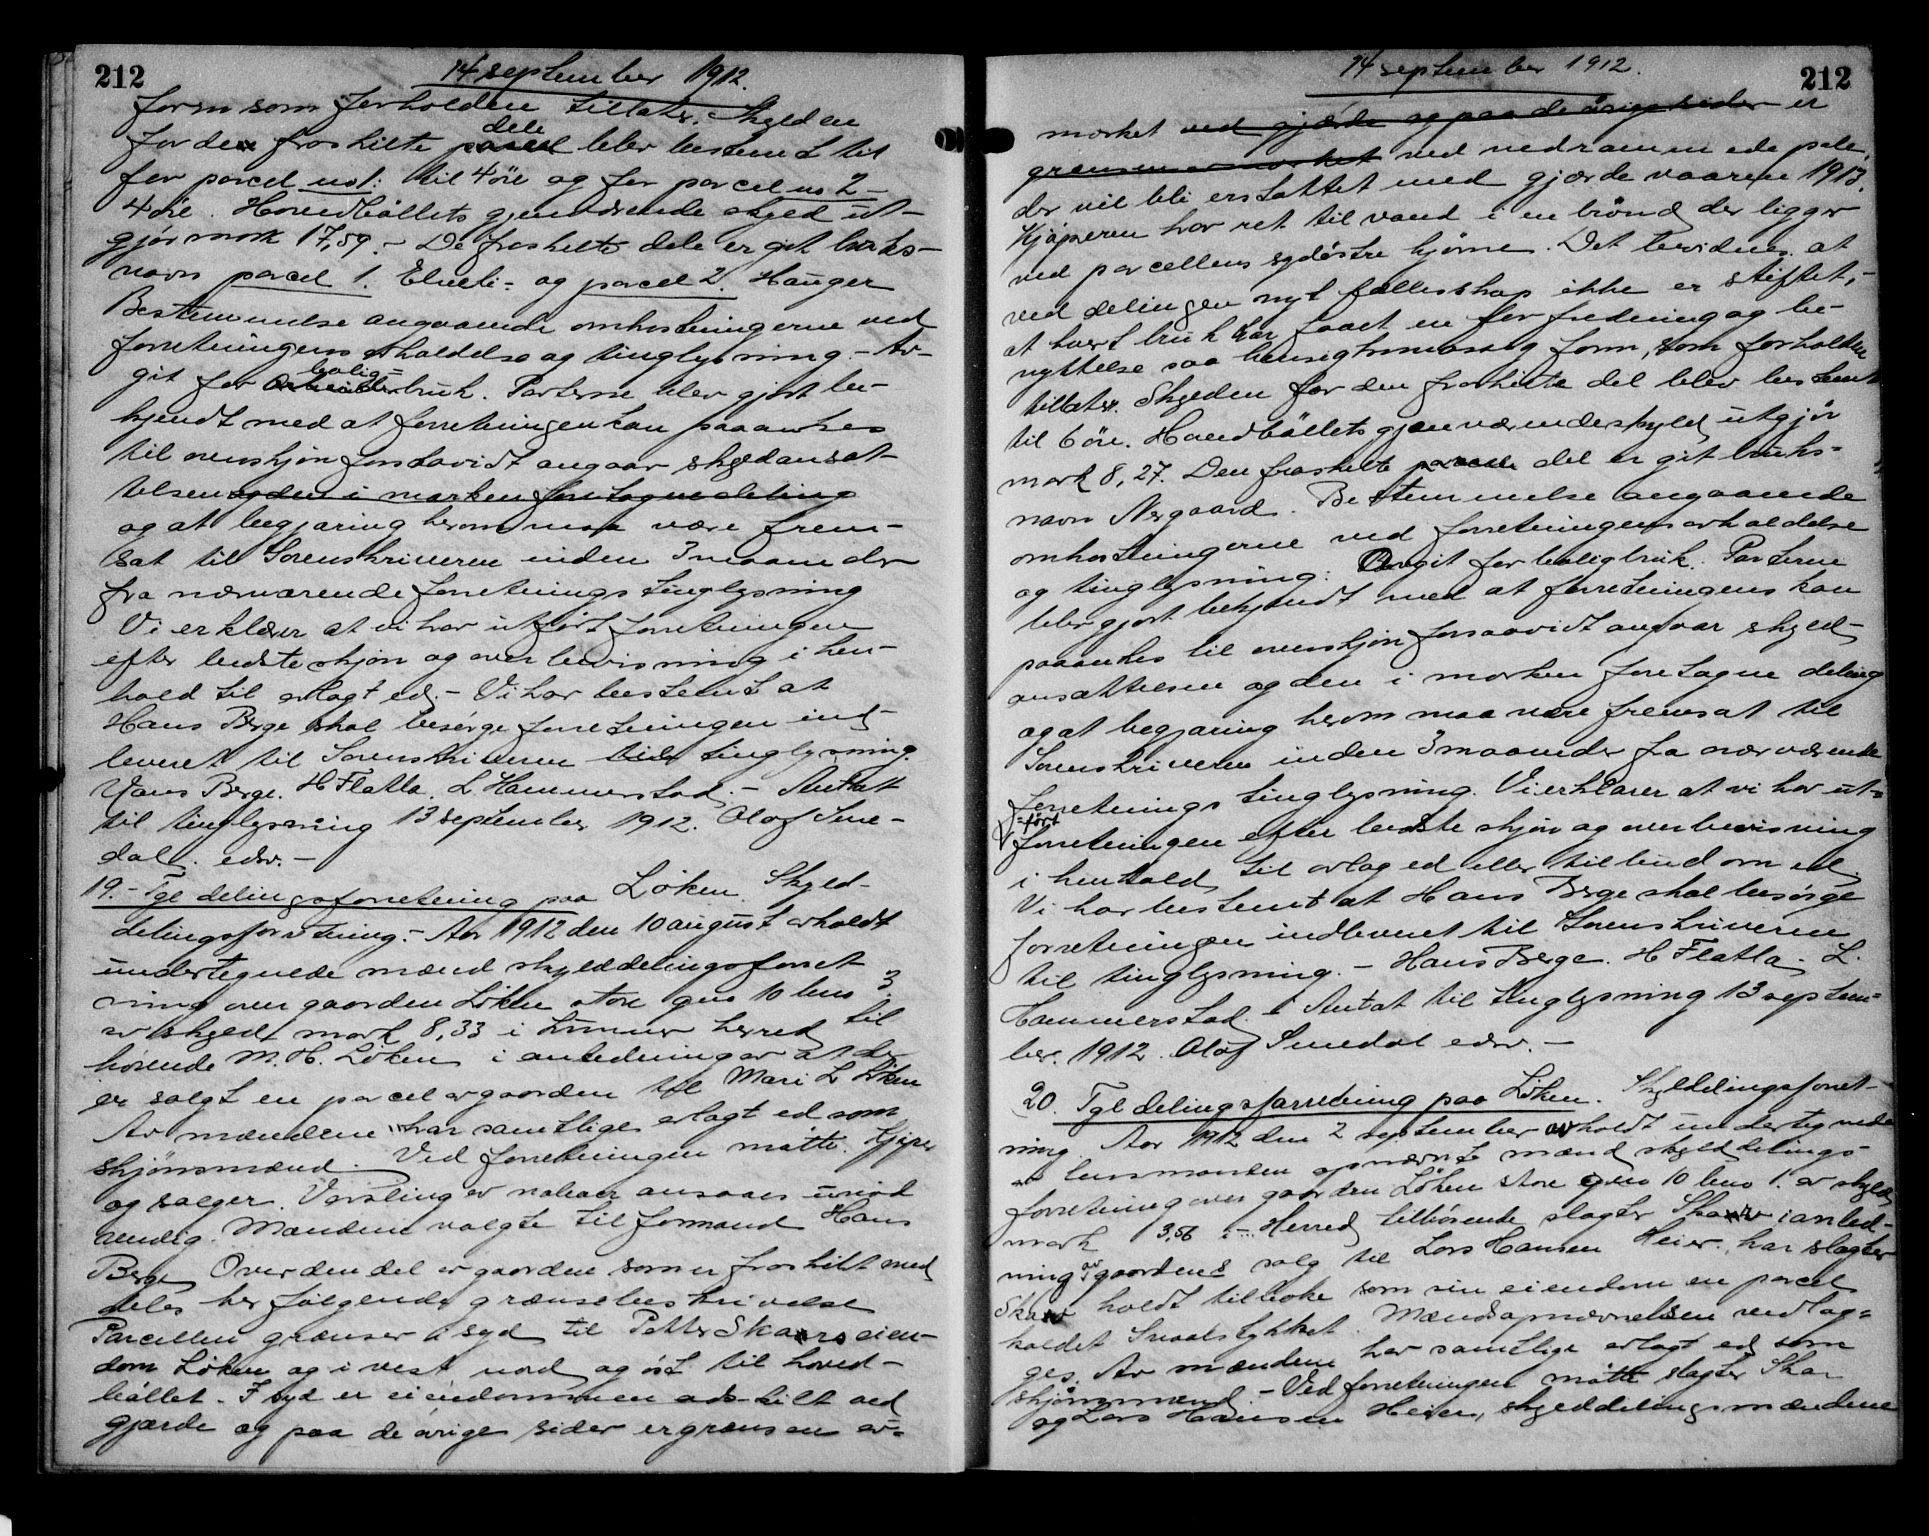 212
14 september 1912.
form som forholdene tillater. Skylden
for de fraskilte dele blev bestemt til
for parcel no 1: til 4 øre og for parcel no 2 -
4 øre. Hovedbøllets gjenværende skyld ut-
gjør mark 17,59. - De fraskilte dele er git bruks-
navn parcel 1. Elveli - og parcel 2. Hauger
Bestemmelse angaaende omkostningerne ved
forretningens avholdelse og tinglysning. - Av-
git for bolig-
bruk. Parterne blev gjort be-
kjendt med at forretningen kan paaankes
til overskjøn forsaavidt angaar skyldansæt-
telsen og den i marken foretagne deling
og at begjæring herom maa være frem-
sat til Sorenskriveren inden 3 maaneder
fra nærværende forretnings tinglysning
Vi erklærer at vi har utført forretningen
efter bedste skjøn og overbevisning i hen-
hold til avlagt ed. - Vi har bestemt at
Hans Berge skal besørge forretningen ind-
leveret til Sorenskriveren til tinglysning.
Hans Berge. H Flatla. L Hammerstad. - Antat
til tinglysning 13 september 1912. Olof Sme-
dal. edsv. -
19. - Tgl delingsforretning paa Løken. Skyld-
delingsforretning. - Aar 1912 den 10 august avholdt
undertegnede mænd skylddelingsforret
ning over gaarden Løken store gno 10 bno 3.
av skyld mark 8,33 i Lunner herred til
hørende M. H. Løken i anledning av at der
er solgt en parcel av gaarden til Mari L Løken
Av mændene har samtlige avlagt ed som
skjønsmænd. Ved forretningen møtte kjøper
og sælger. Varsling av naboer ansaaes unød
vendig. Mændene valgte til formand Hans
Berge Over den del av gaarden som er fraskilt med
deles her følgende grænsebeskrivelse
Parcellen grænser i syd til Petter Skaars eien-
dom Løken og i vest nord og øst til hoved-
bøllet. I syd er eiendommen adskilt ved
gjærde og paa de øvrige sider er grænsen av-
14 september 1912.
212
merket ved gjærde og paa de øvrige sider er
grænsen avmerket ved nedrammede pæle,
der vil bli erstattet med gjærde vaaren 1913.
Kjøperen har ret til vand i en brønd der ligger
ved parcellens sydøstre hjørne. Det bevidnes at
ved delingen nyt fællesskap ikke er stiftet, -
at hvert bruk har faaet en for fredning og be-
nyttelse saa hensigtsmæssig form, som forholdene
tillater. Skylden for den fraskilte del blev bestemt
til 6 øre. Hovedbøllets gjenværende skyld utgjør
mark 8,27. Den fraskilte del er git bruks-
navn Nygaard. Bestemmelse angaaende
omkostningerne ved forretningens avholdelse
og tinglysning: Avgit for boligbruk. Parterne
blev gjort bekjendt med at forretningens kan
paaankes til overskjøn forsaavidt angaar skyld-
ansættelsen og den i marken foretagne deling
og at begjæring herom maa være fremsat til
Sorenskriveren inden 3 maaneder fra nærværende
forretnings tinglysning. Vi erklærer at vi har ut-
ført
forretningen efter bedste skjøn og overbevisning
i henhold til avlag ed eller tilbud om ed.
Vi har bestemt at Hans Berge skal besørge
forretningen indleveret til Sorenskriveren
til tinglysning. - Hans Berge. H Flatla. L.
Hammerstad. - Antat til tinglysning 13 septem-
ber. 1912. Olof Smedal edsv. -
20. Tgl delingsforretning paa Løken. Skylddelingsforret-
ning. Aar 1912 den 2 september avholdt undertegnede
av lensmanden opnævnte mænd skylddelings-
forretning over gaarden Løken store gno 10 bno 1. av skyld
mark 3,56 i - Herred tilhørende slagter Skaar i anled-
ning av gaardens salg til Lars Hansen Heier, har slagter
Skaar holdt tilbake som sin eiendom en parcel
kaldet Smalstykket. Mændsopnævnelsen vedlæg-
ges. Av mændene har samtlige avlagt ed som
skjønsmænd. - Ved forretningen møtte slagter Skar
og Lars Hansen Heier, skylddelingsmændene